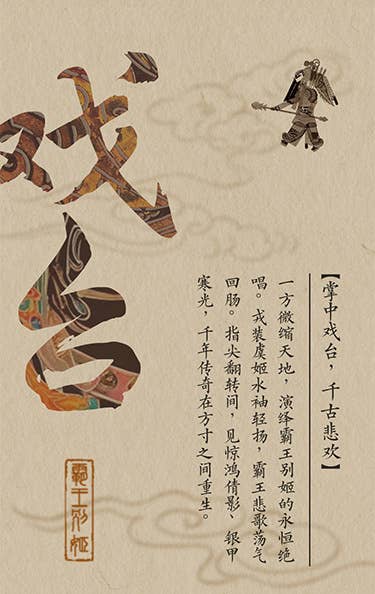 戏台
【掌中戏台，千古悲欢】
一方微缩天地，演绎霸王别姬的永恒绝
唱。戎装虞姬水袖轻扬，霸王悲歌荡气
回肠。指尖翻转间，见惊鸿倩影、银甲
寒光，千年传奇在方寸之间重生。
霸王别姬